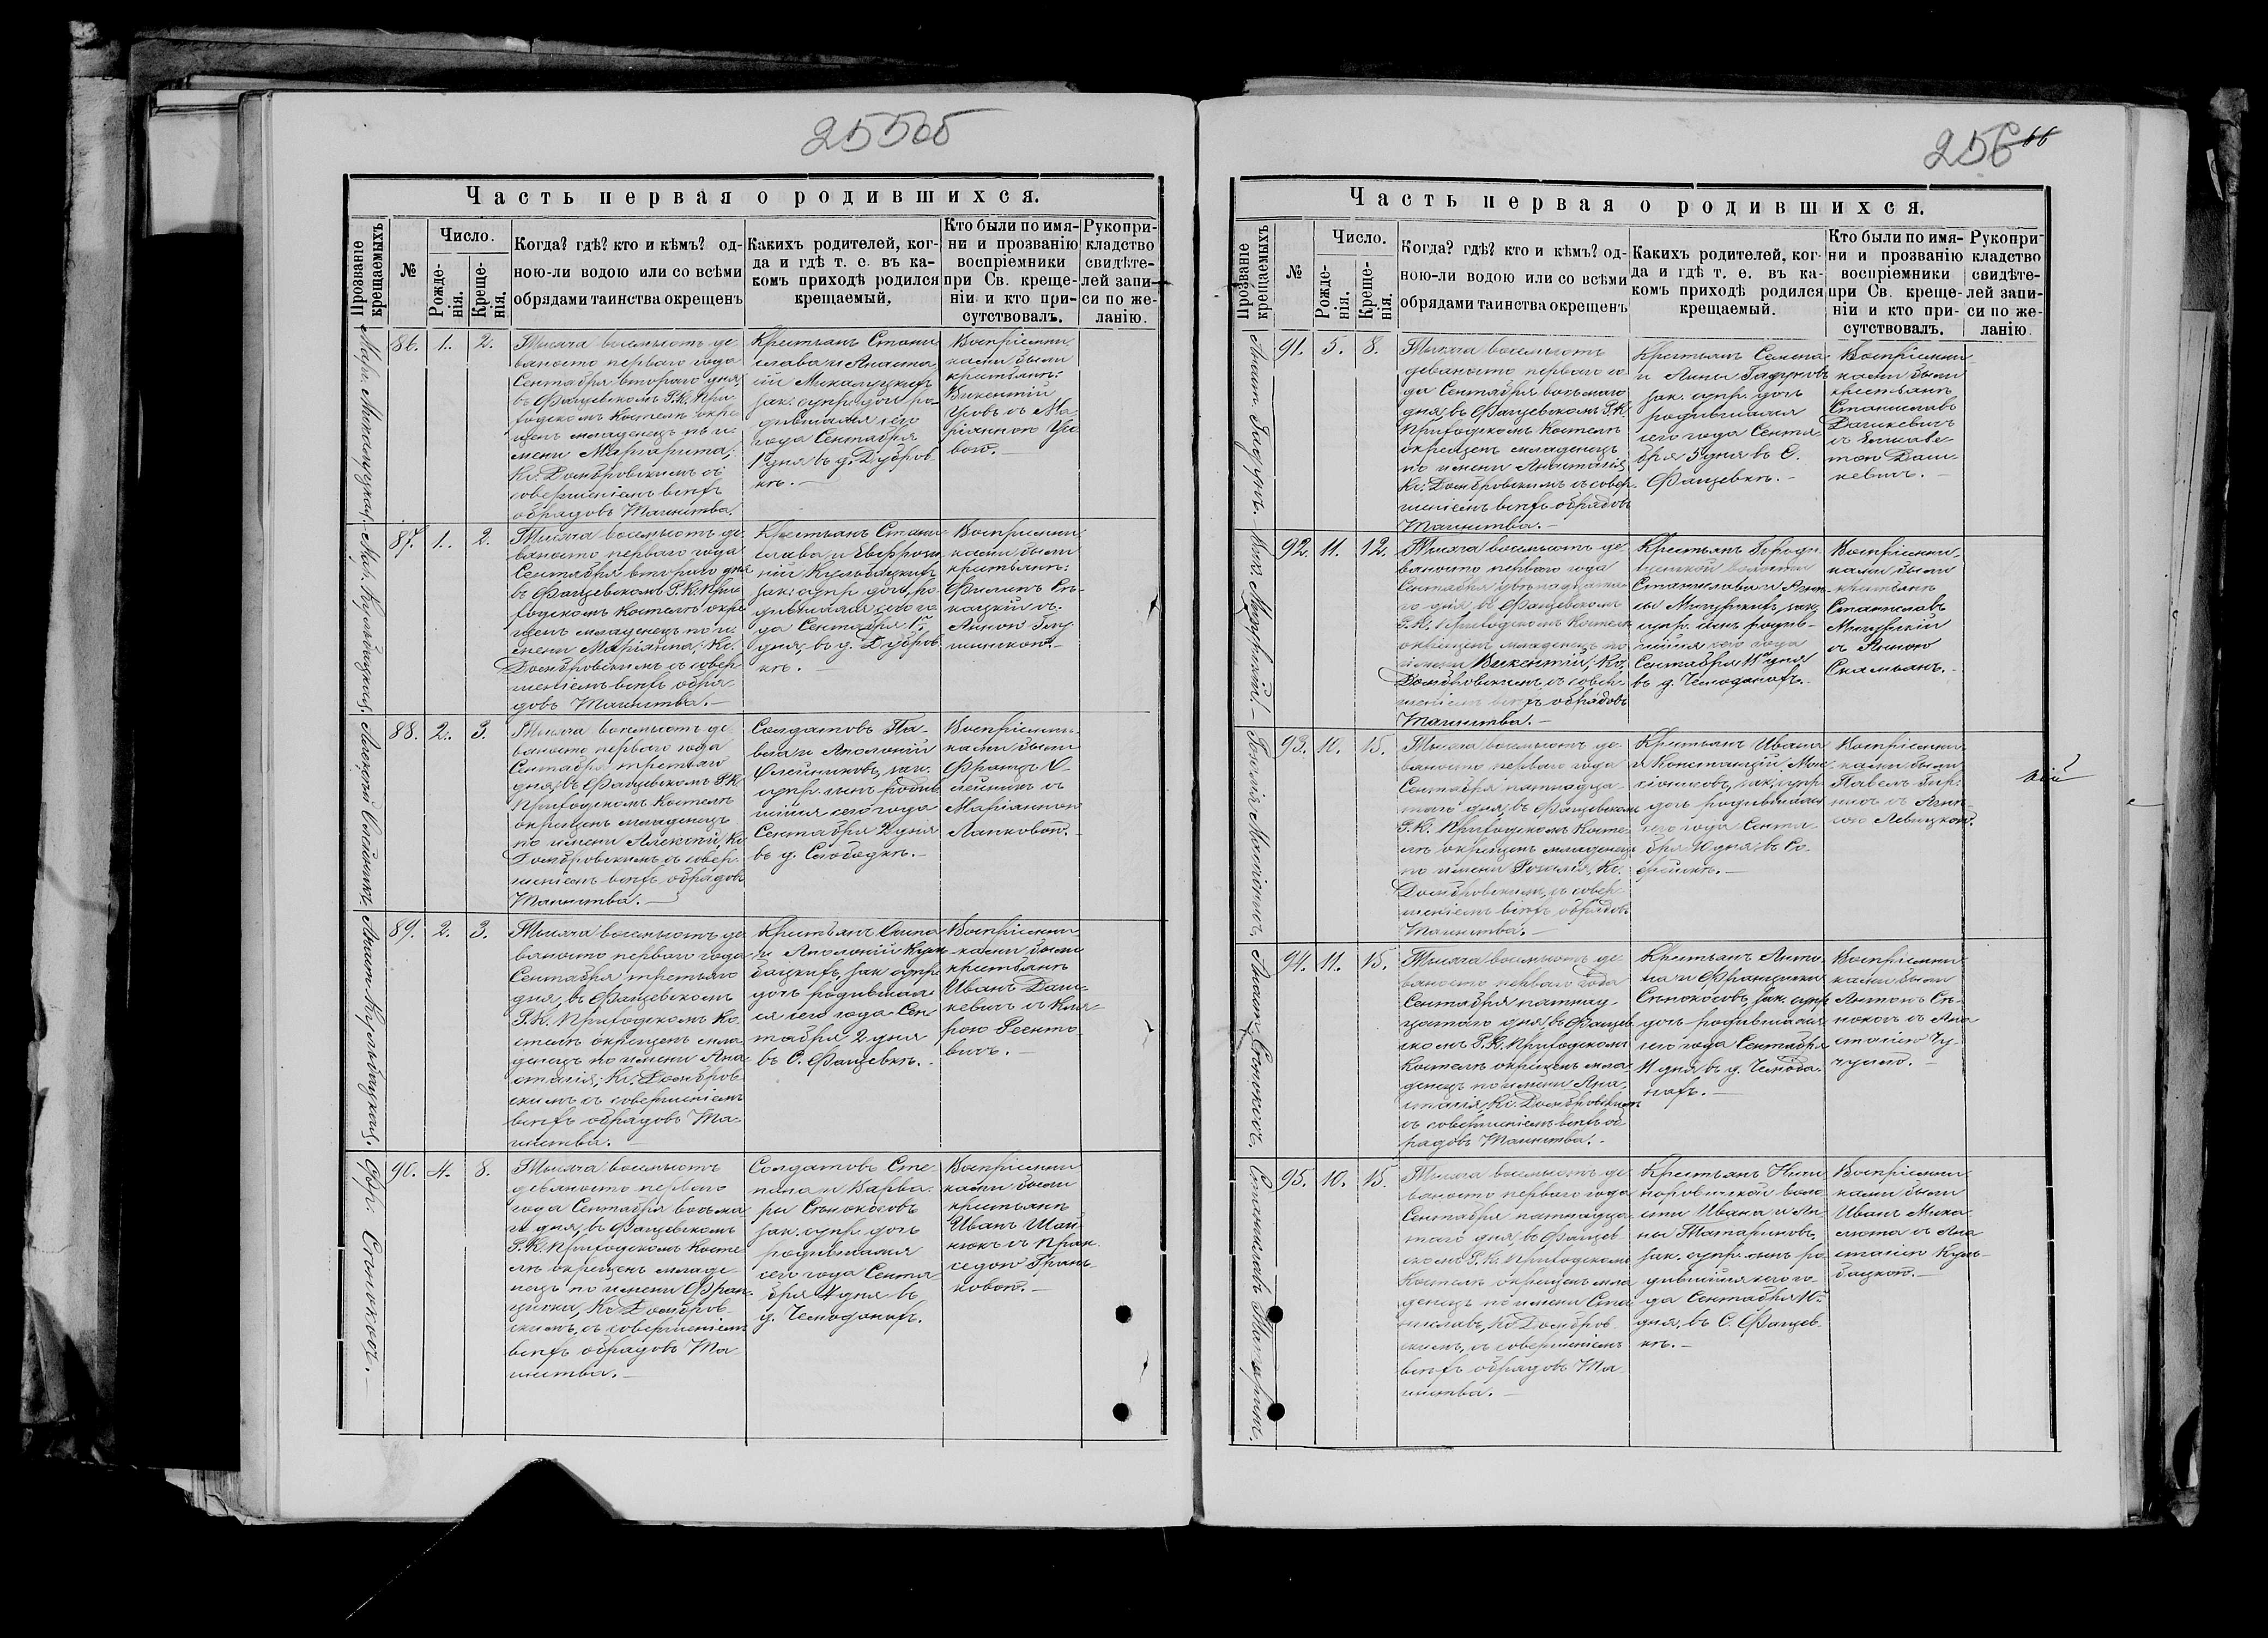 255об
Часть первая о родившихся.
Прозваніе крещаемыхъ
№
Число.
Рожде-
нія.
Креще-
нія.
Когда? гдѣ? кто и кѣмъ? од-
ною-ли водою или со всѣми
обрядами таинства окрещенъ
Какихъ родителей, ког-
да и гдѣ т. е. въ ка-
комъ приходѣ родился
крещаемый.
Кто были по имя-
ни и прозванію
воспріемники
при Св. креще-
ніи и кто при-
сутствовалъ.
Рукопри-
кладство
свидѣте-
лей запи-
си по же-
ланію.
86. 1. 2.
Тысяча восемьсотъ де
вяносто перваго года
Сентября втораго дня,
въ Фащевскомъ Р.К. При
ходскомъ Костелѣ окре
щенъ младенецъ по и-
мени Маргарита,
Кс. Домбровскимъ съ
совершеніемъ всѣхъ
обрядовъ Таинства.
Крестьянъ Стани
слава и Анаста
ціи
зак. супр. дочь ро-
дившаяся сего
года Сентября
1 дня въ д. Дубров
кѣ.
Воспріемни-
ками были
крестьяне:
Викентій
Усовъ съ Ма-
ріанною Усо
вою.
87. 1. 2.
Тысяча восемьсотъ де-
вяносто перваго года
Сентября втораго дня
въ Фащевскомъ Р.К. При
ходскомъ Костелѣ окре
щенъ младенецъ по и-
мени Маріанна, Кс.
Домбровскимъ съ совер
шеніемъ всѣхъ обря
довъ Таинства.
Крестьянъ Стани
слава и Евфрози
ніи Кульбацкихъ
зак. супр. дочь, ро
дившаяся сего го
да Сентября 1го
дня, въ д. Дубров
кѣ.
Воспріемни
ками были
крестьяне:
Филипъ
съ
Анною
88. 2. 3.
Тысяча восемьсотъ де
вяносто перваго года
Сентября третьяго
дня, въ Фащевскомъ Р.К.
Приходскомъ Костелѣ
окрещенъ младенецъ
по имени Алексѣй, Кс.
Домбровскимъ съ совер
шеніемъ всѣхъ обрядовъ
Таинства.
Солдатовъ Па-
вла и Аполоніи
Олейниковъ, зак.
супр. сынъ родив
шійся сего года
Сентября 2 дня
въ д. Слободкѣ.
Воспріемни-
ками были
Францъ О-
лейникъ съ
Маріанною
Лапковою.
89. 2. 3.
Тысяча восемьсотъ де
вяносто перваго года
Сентября третьяго
дня, въ Фащевскомъ
Р.К. Приходскомъ Ко
стелѣ окрещенъ мла
денецъ по имени Ана
стасія, Кс. Домбров
скимъ съ совершеніемъ
всѣхъ обрядовъ Та-
инства.
Крестьянъ Осипа
и Аполоніи Куль
бацкихъ, зак. супр.
дочь родившая
ся сего года Сен
тября 2 дня
въ С. Фащевкѣ.
Воспріемни
ками были
крестьяне
Иванъ Даш
кевичъ съ Кля-
рою Реенто
вичъ.
90. 4. 8.
Тысяча восемьсотъ
девяносто перваго
года Сентября восьма
го дня, въ Фащевскомъ
Р.К. Приходскомъ Косте
лѣ окрещенъ младе-
нецъ по имени Фран
циска, Кс. Домбров-
скимъ, съ совершеніемъ
всѣхъ обрядовъ Та
инства.
Солдатовъ Сте-
пана и Варва-
ры Сѣнокосовъ
зак. супр. дочь
родившаяся
сего года Сентя
бря 4 дня въ
д. Чемоданахъ.
Воспріемни
ками были
крестьяне
Иванъ
съ Прак
седою
256
66
Часть первая о родившихся.
Прозваніе крещаемыхъ
№
Число.
Рожде-
нія.
Креще-
нія.
Когда? гдѣ? кто и кѣмъ? од-
ною-ли водою или со всѣми
обрядами таинства окрещенъ
Какихъ родителей, ког-
да и гдѣ т. е. въ ка-
комъ приходѣ родился
крещаемый.
Кто были по имя-
ни и прозванію
воспріемники
при Св. креще-
ніи и кто при-
сутствовалъ.
Рукопри-
кладство
свидѣте-
лей запи-
си по же-
ланію.
91. 5. 8.
Тысяча восемьсотъ
девяносто перваго го
да Сентября восьмаго
дня, въ Фащевскомъ Р.К.
Приходскомъ Костелѣ
окрещенъ младенецъ
по имени Анастасія,
Кс. Домбровскимъ съ совер
шеніемъ всѣхъ обрядовъ
Таинства.
Крестьянъ
и Анны
зак. супр. дочь
родившаяся
сего года Сентя
бря 5 дня въ С.
Фащевкѣ.
Воспріемни
ками были
крестьяне
Станиславъ
Дашкевичъ
съ Елизаве
тою Даш
кевичъ.
92. 11. 12.
Тысяча восемьсотъ де
вяносто перваго года
Сентября двѣнадцата
го дня въ Фащевскомъ
Р.К. Приходскомъ Костелѣ
окрещенъ младенецъ по
имени Викентій, Кс.
Домбровскимъ съ совер
шеніемъ всѣхъ обрядовъ
Таинства.
Крестьянъ Городи
щенской волости
Станислава и
зак.
супр. сынъ родив-
шійся сего года
Сентября 11го дня
въ д. Чемоданахъ.
Воспріемни
ками были
крестьяне
Станиславъ
съ Анною
93. 10. 15.
Тысяча восемьсотъ де-
вяносто перваго года
Сентября пятнадца
таго дня, въ Фащевскомъ
Р.К. Приходскомъ Косте-
лѣ окрещенъ младенецъ
по имени Розалія, Кс.
Домбровскимъ, съ совер-
шеніемъ всѣхъ обрядовъ
Таинства.
Крестьянъ Ивана
и Констанціи
зак. супр.
дочь родившаяся
сего года Сентя-
бря 10 дня, въ
Воспріемни-
ками были
Павелъ
съ
Левицкою.
94. 11. 15.
Тысяча восемьсотъ де
вяносто перваго года
Сентября пятнад-
цатаго дня, въ Фащев
скомъ Р.К. Приходскомъ
Костелѣ окрещенъ мла-
денецъ по имени Ана-
стасія, Кс. Домбровскимъ
съ совершеніемъ всѣхъ об
рядовъ Таинства.
Крестьянъ Анто-
на и Франциски
Сѣнокосовъ, зак. супр.
дочь родившаяся
сего года Сентября
11 дня въ д. Чемода
нахъ.
Воспріемни
ками были
Антонъ Сѣ-
нокосъ съ Ана
стасіею
95. 10. 15.
Тысяча восемьсотъ де
вяносто перваго года
Сентября пятнадца
таго дня въ Фащев
скомъ Р.К. Приходскомъ
Костелѣ окрещенъ мла
денецъ по имени Ста
ниславъ, Кс. Домбров
скимъ, съ совершеніемъ
всѣхъ обрядовъ Та
инства.
Крестьянъ
воло
сти Ивана и Ан
ны Татариновъ,
зак. супр. сынъ ро
дившійся сего го-
да Сентября 10го
дня, въ С. Фащев
кѣ.
Воспріемни
ками были
Иванъ
съ Ана
стасіею Куль-
бацкою.